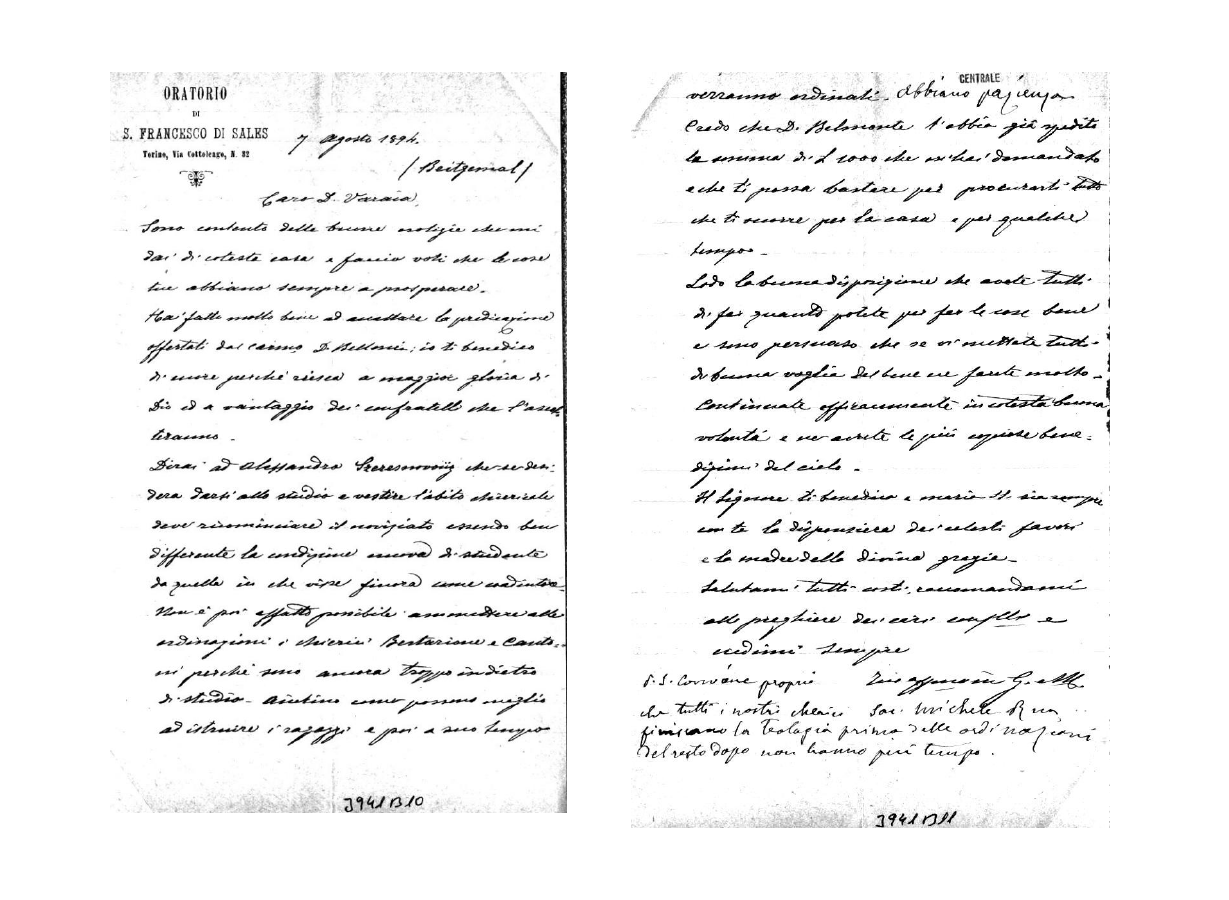 ORATORIO
DI
S. FRANCESCO DI SALES
Torino, Via Cottolengo, N. 32
7 Agosto 1894.
(Beitgemal)
Caro D. Varaia,
Sono contento delle buone notizie che mi
dai di cotesta casa e faccio voti che le cose
tue abbiano sempre a prosperare.
Hai fatto molto bene ad accettare la predicazione
offertati dal Carmo D. Belloni; io ti benedico
di cuore perchè riesca a maggior gloria di
Dio ed a vantaggio dei confratelli che l'ascol-
teranno.
Dirai ad Alessandro che se desi-
dera darsi allo studio e vestire l'abito chiericale
deve ricominciare il noviziato essendo ben
differente la condizione nuova di studente
da quella in che visse finora come coadiutore.
Non è poi affatto possibile ammettere alle
ordinazioni i chierici Bestazione e Canto-
ni perchè sono ancora troppo indietro
di studio. Aiutino come possono meglio
ad istruire i ragazzi e poi a suo tempo
CENTRALE
verranno ordinati. Abbiano pazienza
Credo che D. Belmonte t'abbia già spedito
la somma di L 1000 che mi hai domandato
e che ti possa bastare per procurarti tutto
che ti occorre per la casa e per qualche
tempo.
Lodo la buona disposizione che avete tutti
di far quanto potete per far le cose bene
e sono persuaso che se vi mettete tutti
di buona voglia del bene ne farete molto.
Continuate efficacemente in cotesta buona
volontà e ne avrete le più copiose bene-
dizioni del cielo.
Il Signore ti benedica e Maria SS. sia sempre
con te la dispensiera dei celesti favori
e la madre della divina grazia.
Salutami tutti costì, raccomandami
alle preghiere dei cari conflli e
credimi sempre
P.S. Conviene proprio
Tuo affmo in G. e M.
che tutti i nostri chierici
Sac. Michele Rua
finiscano la teologia prima delle ordinazioni
del resto dopo non hanno più tempo.
3941 B10
3941 B11